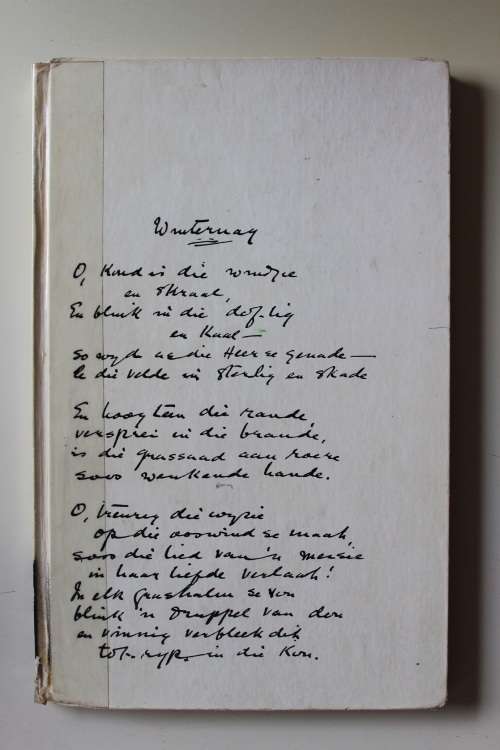 Winternag
O, Koud is die windjie
en skraal,
En blink in die dof-lig
en Kaal —
so wyd as die Heer se genade —
lê die velde in sterlig en skade
En hoog in die rande,
versprei in die brande,
is die grassaad aan roere
soos wenkende hande.
O, treurig die wysie
op die ooswind se maat,
soos die lied van 'n meisie
in haar liefde verlaat!
In elk grashalm se vou
blink 'n druppel van dou
en vinnig verbleek dit
tot ryp in die Kou.